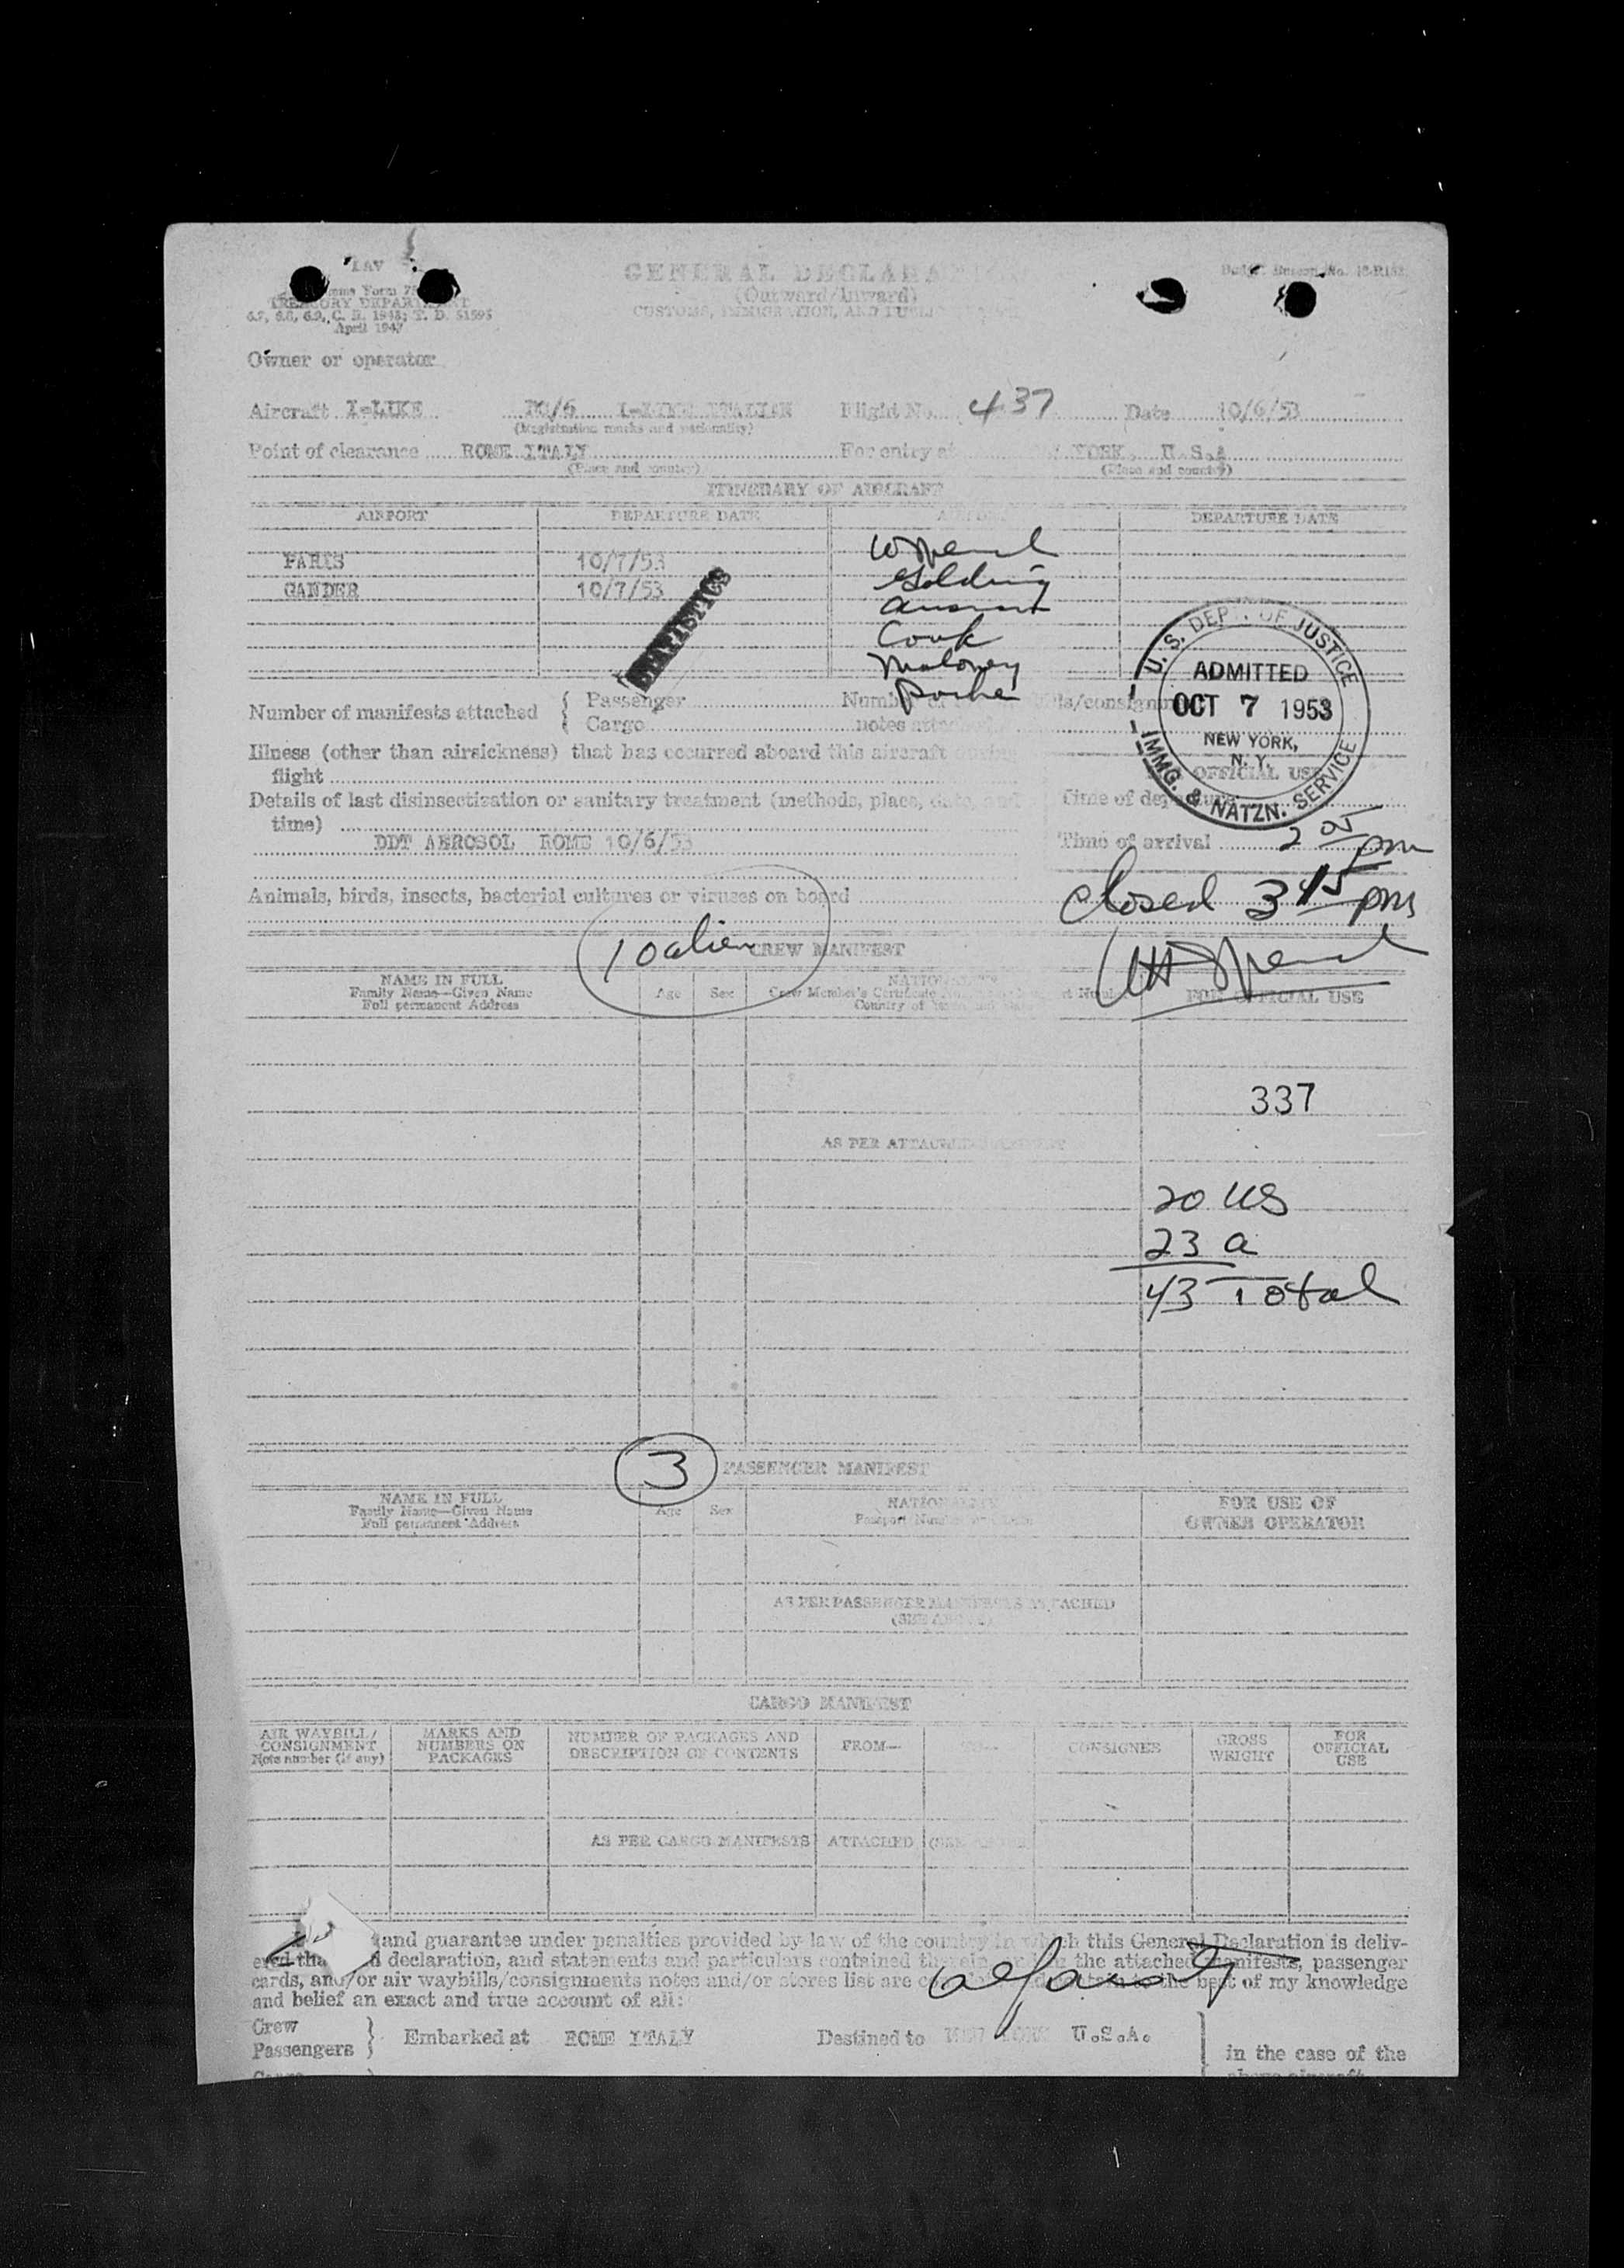 LAV
Customs Form 75
TREASURY DEPARTMENT
6.7, 6.8, 6.9, C. R. 1943; T. D. 51595
April 1947
GENERAL DECLARATION
(Outward/Inward)
CUSTOMS, IMMIGRATION, AND PUBLIC
Owner or operator
Aircraft I-LIKE DC/6 I-LIKE ITALIAN Flight No. 437 Date 10/6/53
(Registration marks and nationality)
Point of clearance ROME ITALY For entry at YORK, U.S.A
(Place and country) (Place and country)
ITINERARY OF AIRCRAFT
AIRPORT DEPARTURE DATE DEPARTURE DATE
PARIS 10/7/53
GANDER 10/7/53
STATISTICS
Golding
Cook
Maloney
U.S. DEPT. OF JUSTICE
ADMITTED
OCT 7 1953
NEW YORK,
N.Y.
IMMG. & NATZN. SERVICE
Number of manifests attached { Passenger
Cargo notes attached
Illness (other than airsickness) that has occurred aboard this aircraft
flight
OFFICIAL USE
Details of last disinsectization or sanitary treatment (methods, place, date, and
time)
DDT AEROSOL ROME 10/6/53
Time of departure
Time of arrival 2 05 pm
Closed 3 45 pm
Animals, birds, insects, bacterial cultures or viruses on board
10 alien
CREW MANIFEST
NAME IN FULL
Family Name—Given Name
Full permanent Address
Age Sex
NATIONALITY
Crew Member's Certificate
Country of
FOR OFFICIAL USE
337
AS PER ATTACHED
20 US
23 a
43 Total
3
PASSENGER MANIFEST
NAME IN FULL
Family Name—Given Name
Full permanent Address
Age Sex
NATIONALITY
Passport Number
FOR USE OF
OWNER OPERATOR
AS PER PASSENGER MANIFESTS ATTACHED
(SEE ABOVE)
CARGO MANIFEST
AIR WAYBILL/
CONSIGNMENT
Note number (if any)
MARKS AND
NUMBERS ON
PACKAGES
NUMBER OF PACKAGES AND
DESCRIPTION OF CONTENTS
FROM—
CONSIGNEE
GROSS
WEIGHT
FOR
OFFICIAL
USE
AS PER CARGO MANIFESTS ATTACHED (SEE ABOVE)
and guarantee under penalties provided by law of the country in which this General Declaration is deliv-
ered tha declaration, and statements and particulars contained therein the attached manifests, passenger
cards, and/or air waybills/consignments notes and/or stores list are the best of my knowledge
and belief an exact and true account of all:
Crew
Passengers } Embarked at ROME ITALY Destined to NEW YORK U.S.A. } in the case of the
Cargo above aircraft